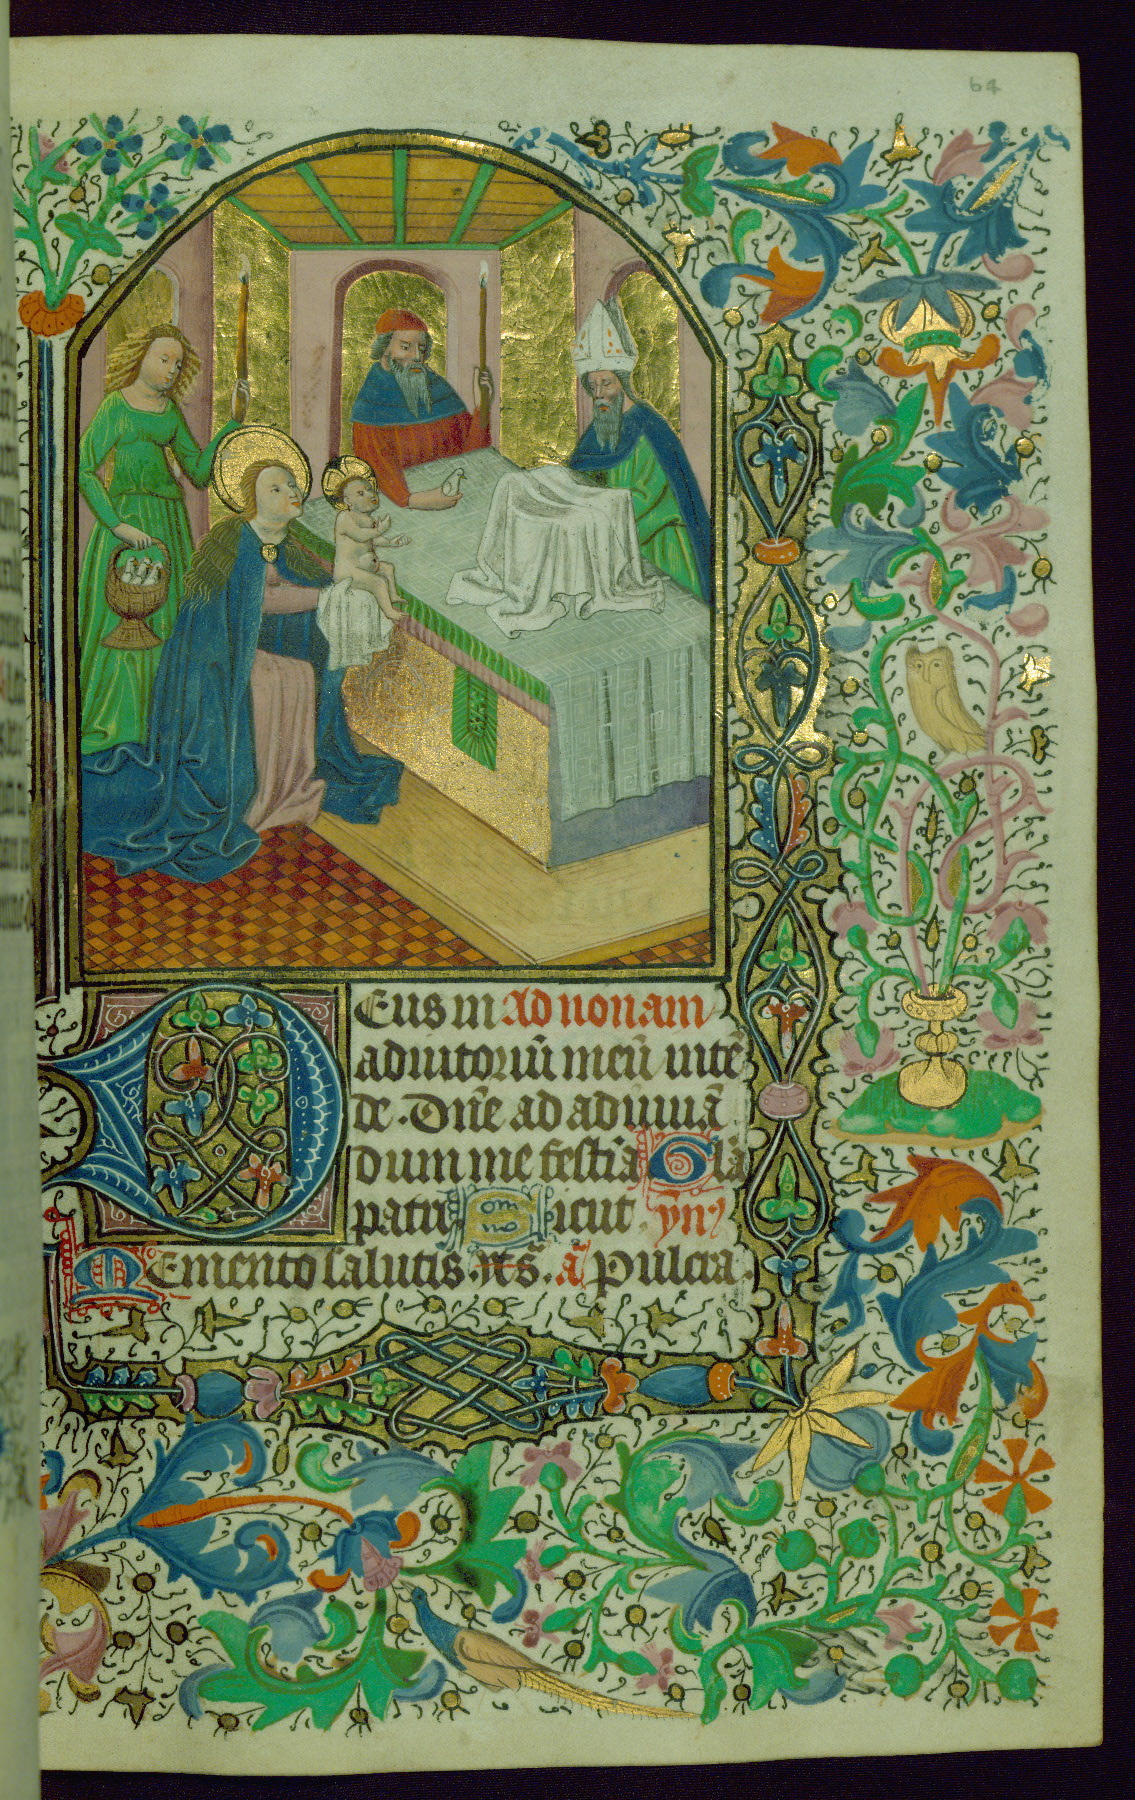 64
Deus in Ad nonam
adiutoriū meū inte
de. Dn̄e ad adiuuā
dum me festīa Gl̄a
patri om̄ib sicut. ymꝰ
Memento salutis. p̄s. ā Pulcra.